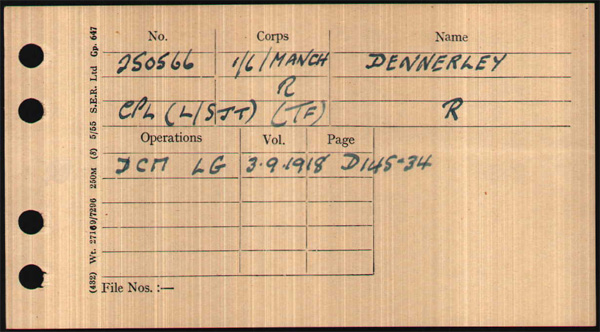 No. Corps Name
250566 1/6/MANCH DENNERLEY
R
CPL (L/SJT) (TF) R
Operations Vol. Page
DCM LG 3.9.1918 D145-34
File Nos. :—
(432) Wt. 27169/7296 250M (8) 5/55 S.E.R. Ltd Gp. 647